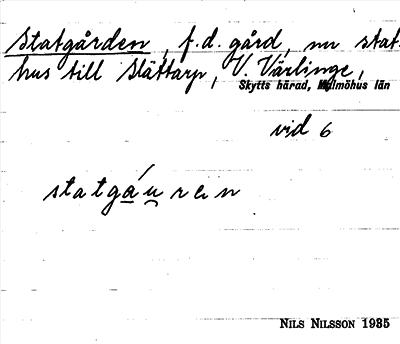 Statgården, f.d. gård, nu stat-
hus till Slättarp, V. Värlinge,
Skytts härad, Malmöhus län
vid 6
statgá̱u̯ ren
NILS NILSSON 1935